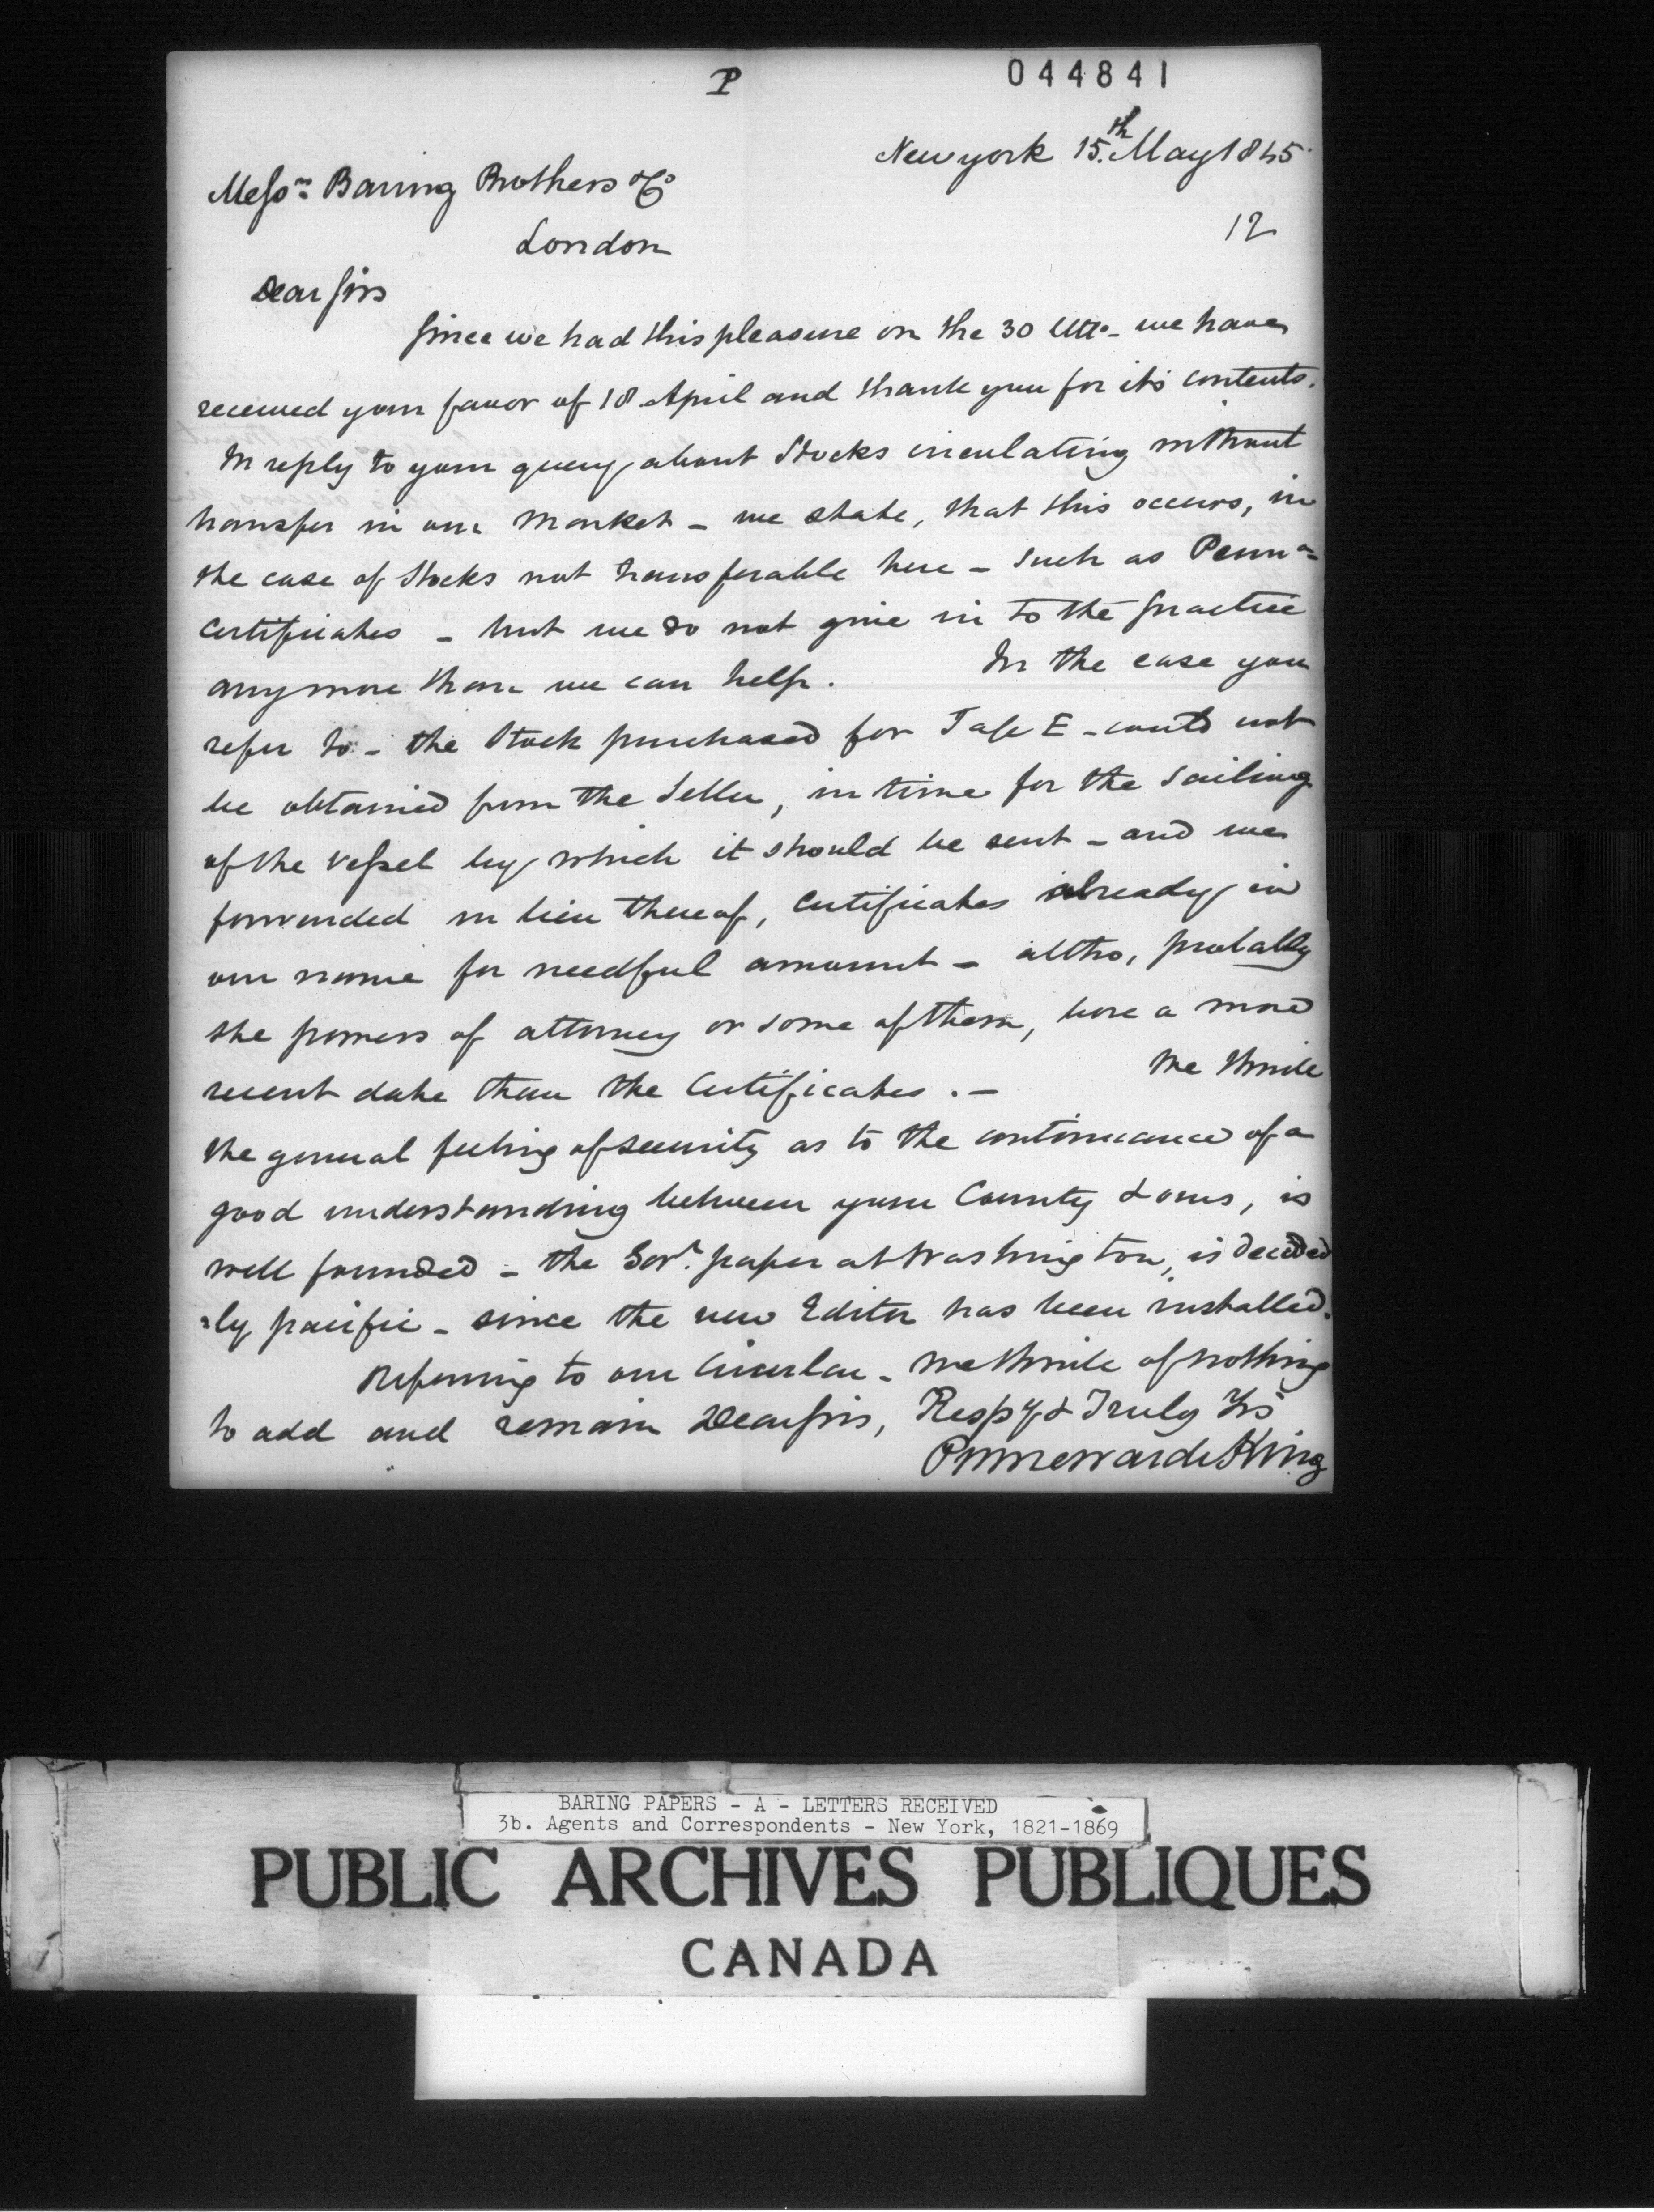 P
044841
New york 15.th May 1845
Messrs Baring Brothers & Co
12
London
Dear Sirs
Since we had this pleasure on the 30 Ulto - we have
received your favor of 18 April and thank you for its contents.
In reply to your query about Stocks circulating without
transfer in our market - we state, that this occurs, in
the case of Stocks not transferable here - such as Penna
Certificates - but we do not give in to the practice
any more than we can help. In the case you
refer to - the Stock purchased for E - could not
be obtained from the Seller, in time for the Sailing
of the Vessel by which it should be sent - and we
forwarded in lieu thereof, Certificates already in
our name for needful amount - altho, probably
the powers of attorney or some of them, bore a more
recent date than the Certificates. - We think
the general feeling of security as to the continuance of a
good understanding between your Country & ours, is
well founded - the Govt. paper at Washington, is decided
-ly pacific - since the new Editor has been installed.
Referring to our Circular - we think of nothing
to add and remain Dear Sirs, Respy & Truly Yrs
Prime Ward & King
BARING PAPERS - A - LETTERS RECEIVED
3b. Agents and Correspondents - New York, 1821-1869
PUBLIC ARCHIVES PUBLIQUES
CANADA